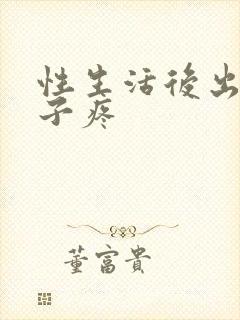 性生活後出
子疼
董富貴